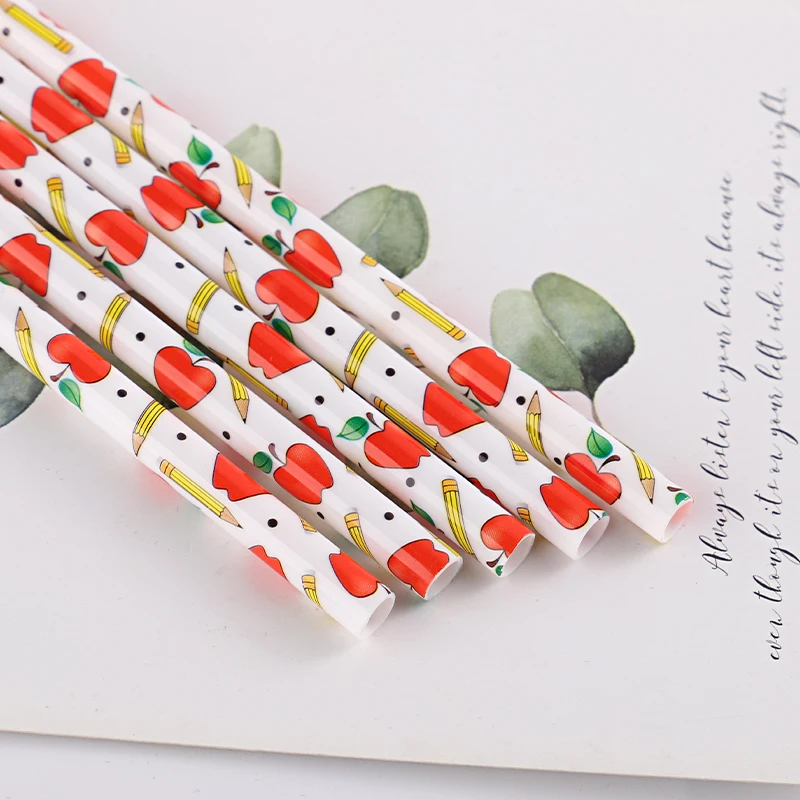 Always listen to your heart because
even though it's on your left side, it's always right.